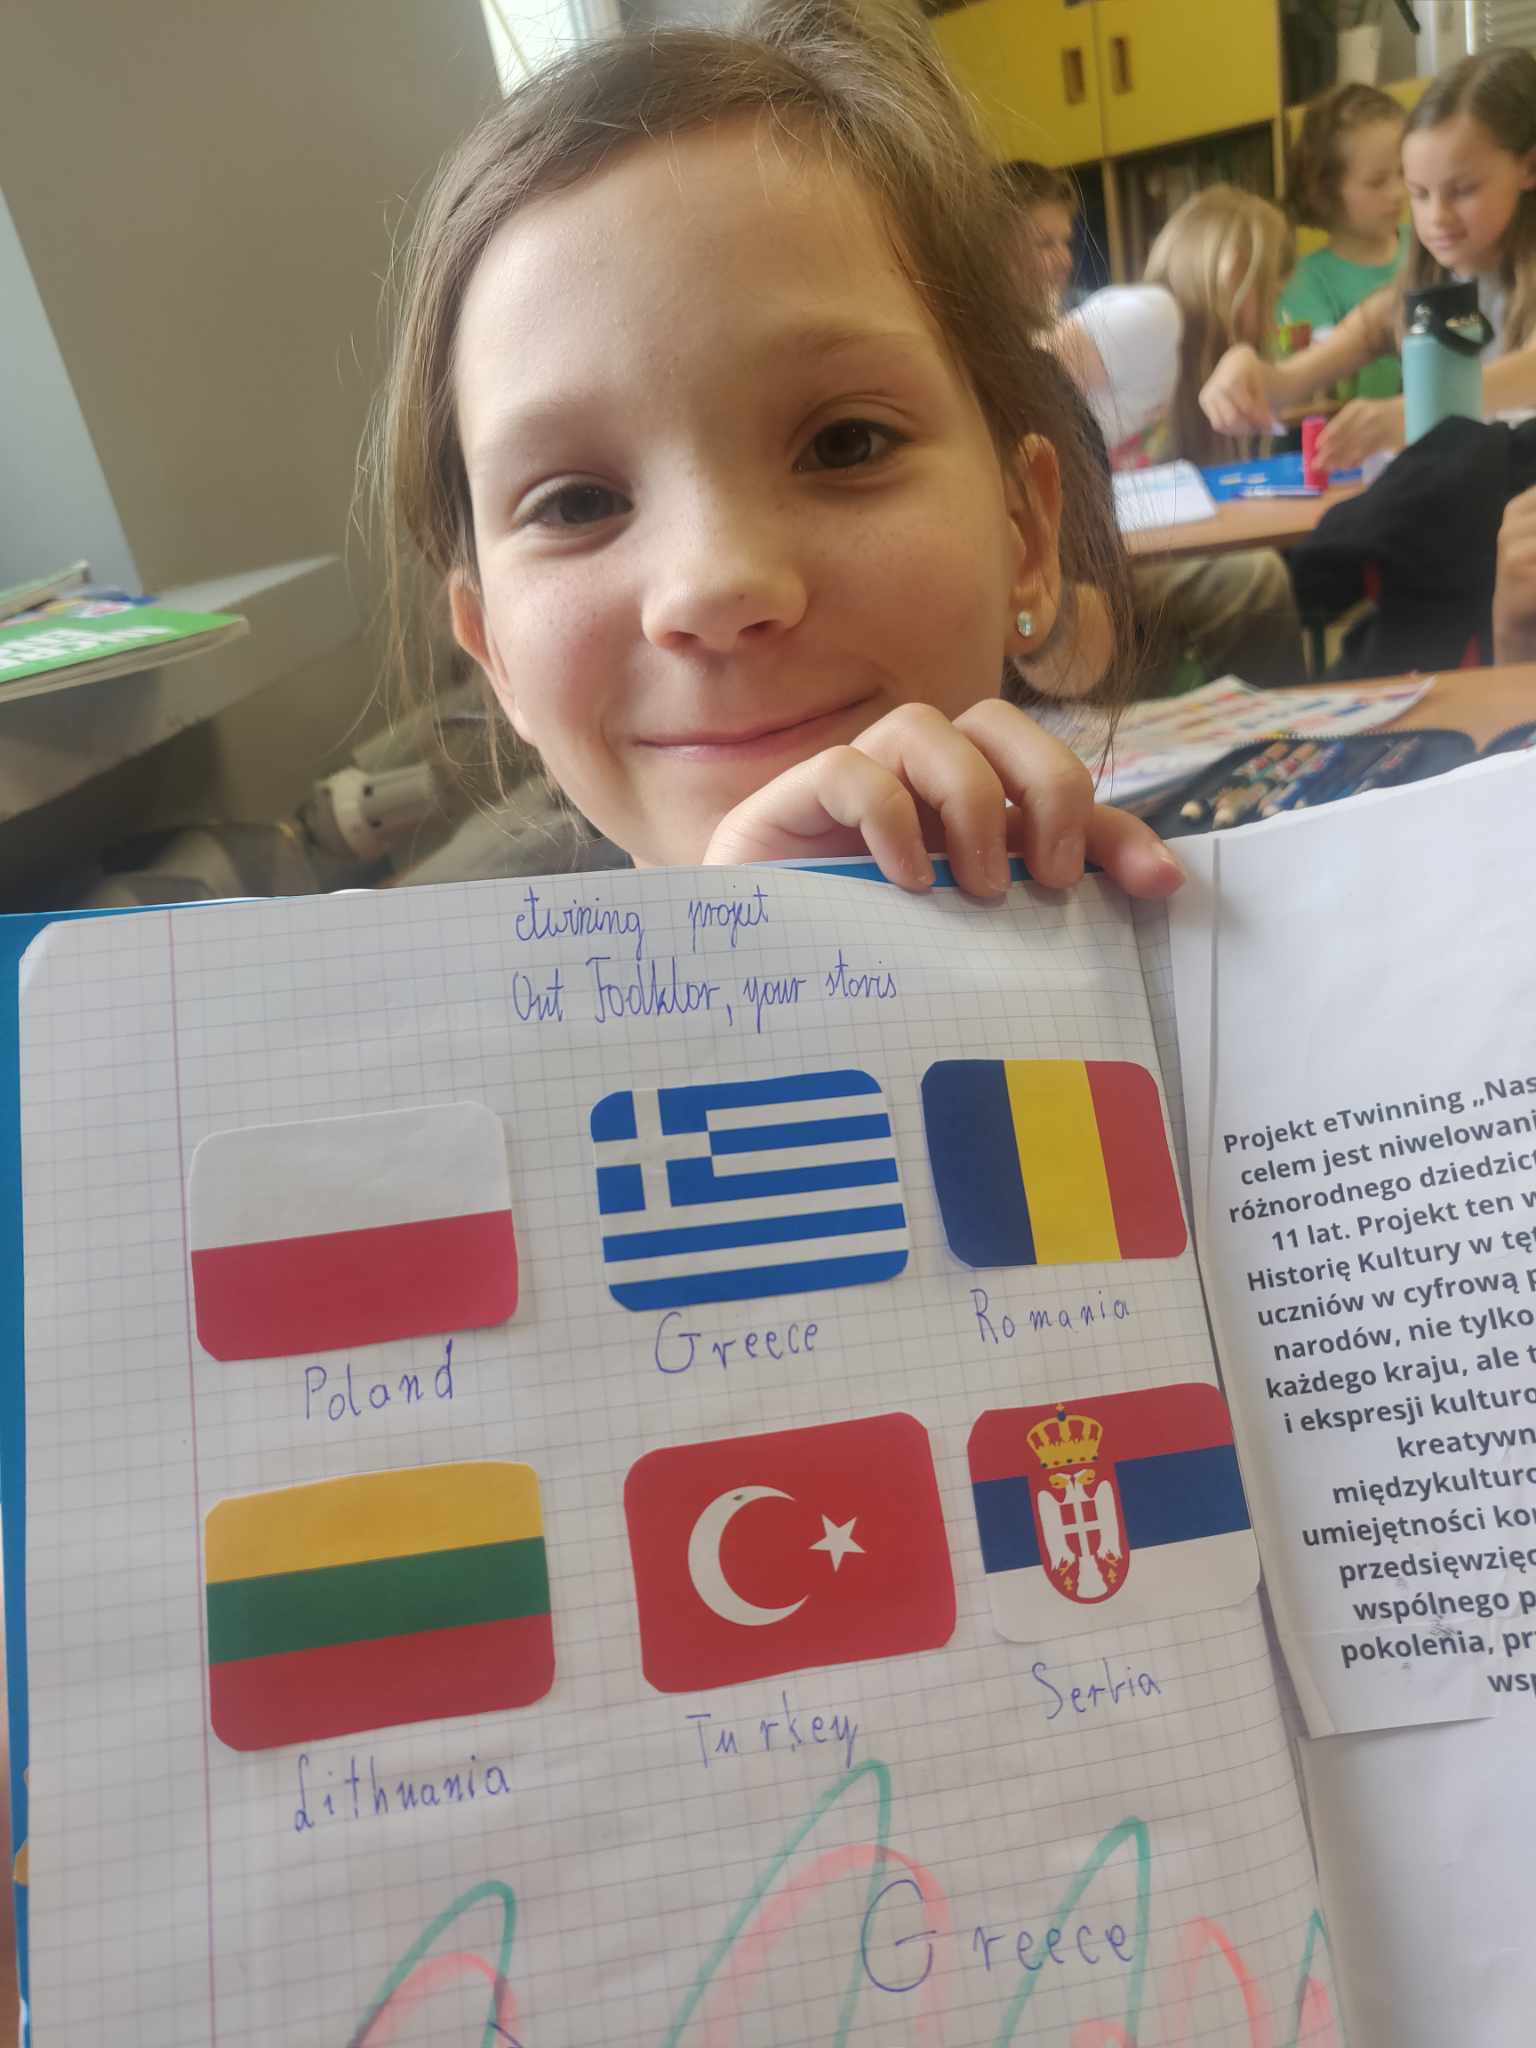 etwining projet
Out Fodklor, your storis
Poland
Greece
Romania
Lithuania
Turkey
Serbia
Greece
Projekt eTwinning „Nas
celem jest niwelowani
różnorodnego dziedzict
11 lat. Projekt ten w
Historię Kultury w tęt
uczniów w cyfrową p
narodów, nie tylko
każdego kraju, ale t
i ekspresji kulturo
kreatywn
międzykulturo
umiejętności kor
przedsięwzięc
wspólnego p
pokolenia, prz
wsp